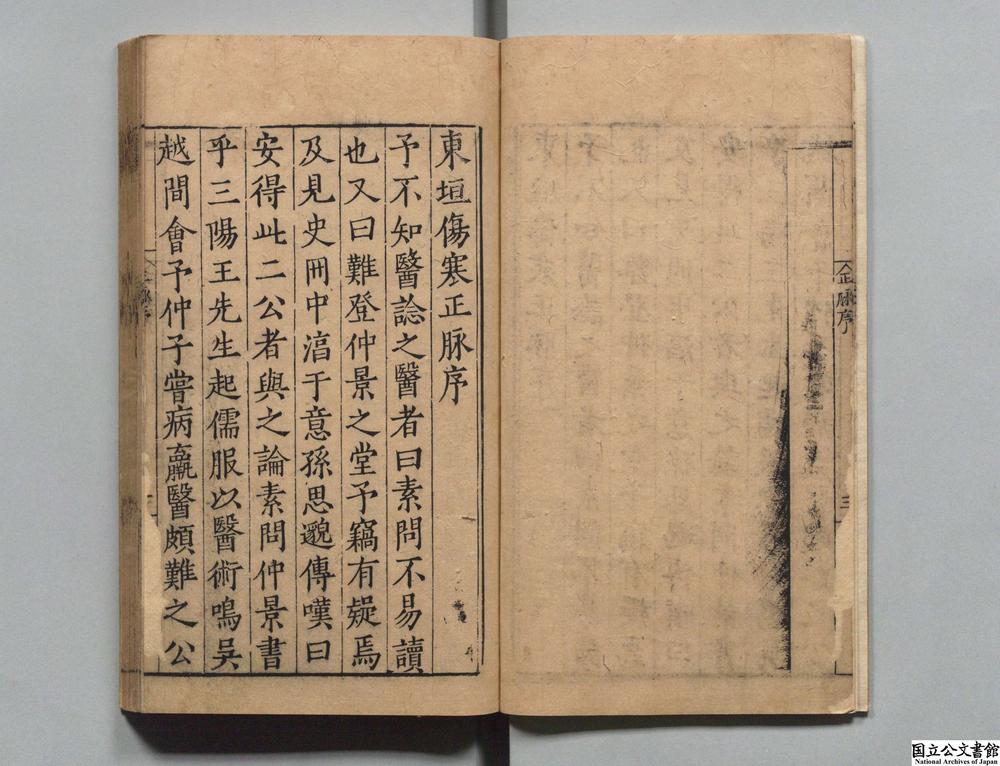 東垣傷寒正脉序
予不知醫諗之醫者曰素問不易讀
也又曰難登仲景之堂予竊有疑焉
及見史冊中淳于意孫思邈傳嘆曰
安得此二公者與之論素問仲景書
乎三陽王先生起儒服以醫術鳴吳
越間會予仲子嘗病羸醫頗難之公
正脉序
三
国立公文書館
National Archives of Japan